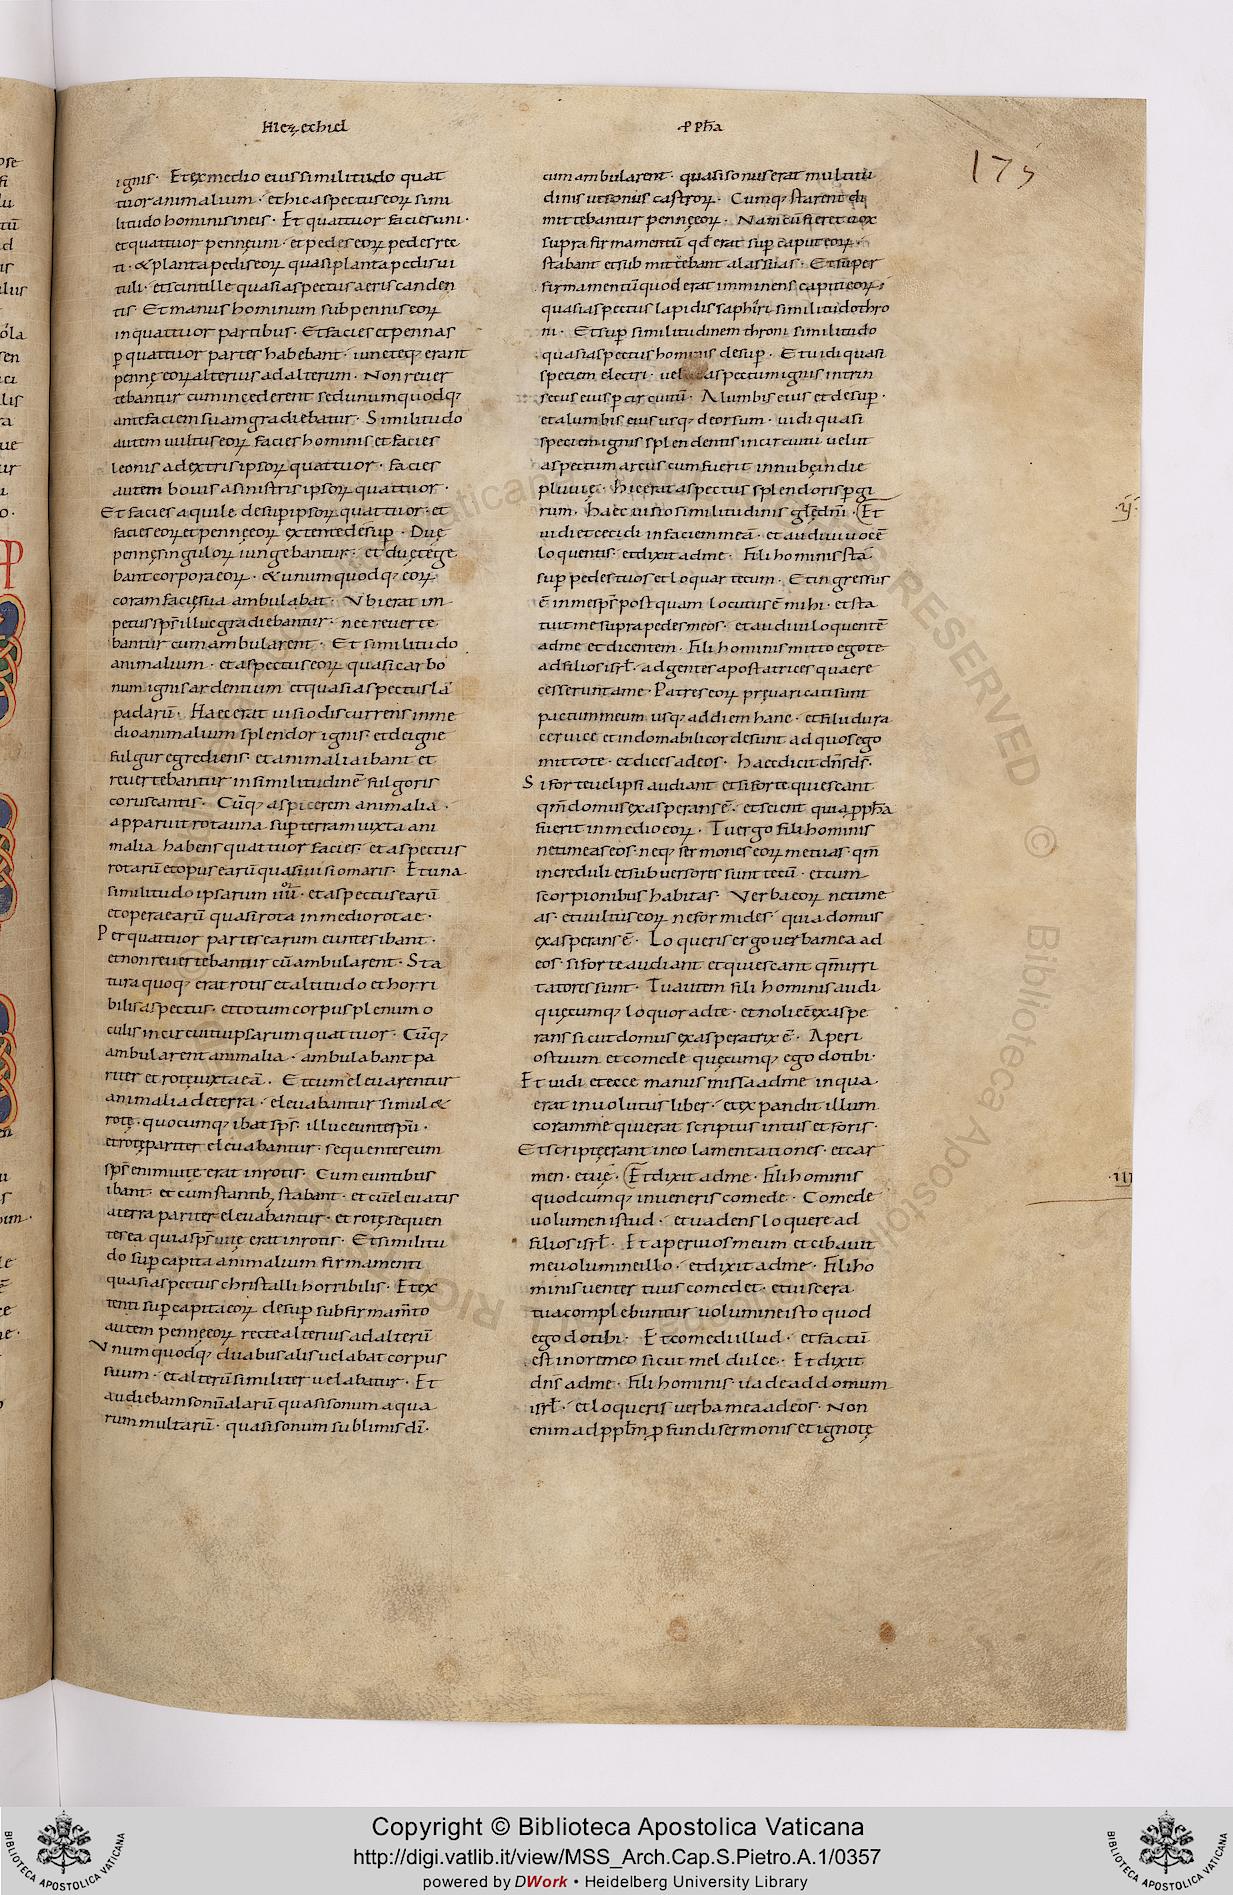 Hiezechiel
ꝓpha
175
ignis · Et ex medio eius similitudo quat
tuor animalium · et hic aspectus eoꝝ simi
litudo hominis in eis · Et quattuor facies uni ·
et quattuor pennę uni · et pedes eoꝝ pedes rec
ti · & planta pedis eoꝝ quasi planta pedis ui
tuli · et scintille quasi aspectus aeris canden
tis · Et manus hominum sub pennis eoꝝ
in quattuor partibus · Et facies et pennas
ꝑ quattuor partes habebant · iunctęq; erant
pennę eoꝝ alterius ad alterum · Non reuer
tebantur cum incederent sed unumquodq;
ante faciem suam gradiebatur · Similitudo
autem uultus eoꝝ facies hominis et facies
leonis a dextris ipsoꝝ quattuor · facies
autem bouis a sinistris ipsoꝝ quattuor ·
Et facies aquile desuꝑ ipsoꝝ quattuor · et
facies eoꝝ et pennę eoꝝ extente desuꝑ · Duę
pennę singuloꝝ iungebantur · et duę tege
bant corpora eoꝝ · & unumquodq; eoꝝ
coram facię sua ambulabat · Vbi erat im
petus sp̄s illuc gradiebantur · nec reuerte
bantur cum ambularent · Et similitudo
animalium · et aspectus eoꝝ quasi carbo
num ignis ardentium et quasi aspectus lā
padarū · Haec erat uisio discurrens in me
dio animalium splendor ignis · et de igne
fulgur egrediens · et animalia ibant et
reuertebantur in similitudinē fulgoris
coruscantis · Cūq; aspicerem animalia ·
apparuit rota una suꝑ terram iuxta ani
malia habens quattuor facies · et aspectus
rotarū et opus earū quasi uisio maris · Et una
similitudo ipsarum iiiior · et aspectus earū
et opera earū quasi rota in medio rotae ·
Per quattuor partes earum euntes ibant ·
et non reuertebantur cū ambularent · Sta
tura quoq; erat rotis et altitudo et horri
bilis aspectus · et totum corpus plenum o
culis in circuitu ipsarum quattuor · Cūq;
ambularent animalia · ambulabant pa
riter et rotę iuxta eā · Et cum eleuarentur
animalia de terra · eleuabantur simul &
rotę · quocumq; ibat sp̄s · illuc eunte sp̄u ·
et rotę pariter eleuabantur · sequentes eum
sp̄s enim uitę erat in rotis · Cum euntibus
ibant · et cum stantib; stabant · et cū eleuatis
a terra pariter eleuabantur · et rotę sequen
tes ea quia sp̄s uitę erat in rotis · Et similitu
do suꝑ capita animalium firmamenti
quasi aspectus christalli horribilis · Et ex
tenti suꝑ capita eoꝝ desuꝑ sub firmam̄to
autem pennę eoꝝ recte alterius ad alterū
Vnumquodq; duabus alis uelabat corpus
suum · et alterū similiter uelabatur · Et
audiebam sonū alarū quasi sonum aqua
rum multarū · quasi sonum sublimis dī ·
cum ambularent · quasi sonus erat multitu
dinis ut sonus castroꝝ · Cumq; starent di
mittebantur pennę eoꝝ · Nam cū fieret uox
supra firmamentū qd̄ erat suꝑ caput eoꝝ ·
stabant et submittebant alas suas · Et super
firmamentū quod erat imminens capiti eoꝝ ·
quasi aspectus lapidis saphiri similitudo thro
ni · Et suꝑ similitudinem throni similitudo
quasi aspectus hominis desuꝑ · Et uidi quasi
speciem electri · uelut aspectum ignis intrin
secus eius ꝑ circuitū · A lumbis eius et desuꝑ ·
et a lumbis eius usq; deorsum · uidi quasi
speciem ignis splendentis in circuitu uelut
aspectum arcus cum fuerit in nubę in die
pluuię · hic erat aspectus splendoris ꝑ gi
rum · haec uisio similitudinis glę dn̄i · Et
uidi et cecidi in faciem meā · et audiui uocē
loquentis · et dixit ad me · Fili hominis sta
suꝑ pedes tuos et loquar tecum · Et ingressus
ē in me sp̄s postquam locutus ē mihi · et sta
tuit me supra pedes meos · et audiui loquentē
ad me et dicentem · Fili hominis mitto ego te
ad filios isrł · ad gentes apostatrices quae re
cesserunt a me · Patres eoꝝ pręuaricati sunt
pactum meum usq; ad diem hanc · et filii dura
ceruice et indomabili corde sunt ad quos ego
mitto te · et dices ad eos · Haec dicit dn̄s ds̄ ·
Si forte uel ipsi audiant et si forte quiescant
qm̄ domus exasperans ē · et scient quia ꝓpha
fuerit in medio eoꝝ · Tu ergo fili hominis
ne timeas eos · neq; sermones eoꝝ metuas · qm̄
increduli et subuersores sunt tecū · et cum
scorpionibus habitas · Verba eoꝝ ne time
as · et uultus eoꝝ ne formides · quia domus
exasperans ē · Loqueris ergo uerba mea ad
eos · si forte audiant et quiescant qm̄ irri
tatores sunt · Tu autem fili hominis audi
quęcumq; loquor ad te · et noli eē exaspe
rans sicut domus exasperatrix ē · Aperi
os tuum et comede quęcumq; ego do tibi ·
Et uidi et ecce manus missa ad me in qua
erat inuolutus liber · et expandit illum
coram me qui erat scriptus intus et foris ·
Et scriptę erant in eo lamentationes · et car
men · et uę · Et dixit ad me · Fili hominis
quodcumq; inueneris comede · Comede
uolumen istud · et uadens loquere ad
filios isrł · Et aperui os meum et cibauit
me uolumine illo · et dixit ad me · Fili ho
minis uenter tuus comedet · et uiscera
tua complebuntur uolumine isto quod
ego do tibi · Et comedi illud · et factū
est in ore meo sicut mel dulce · Et dixit
dn̄s ad me · Fili hominis uade ad domum
isrł · et loqueris uerba mea ad eos · Non
enim ad ppłm ꝓfundi sermonis et ignotę
·ij·
·iij
Copyright © Biblioteca Apostolica Vaticana
http://digi.vatlib.it/view/MSS_Arch.Cap.S.Pietro.A.1/0357
powered by DWork • Heidelberg University Library